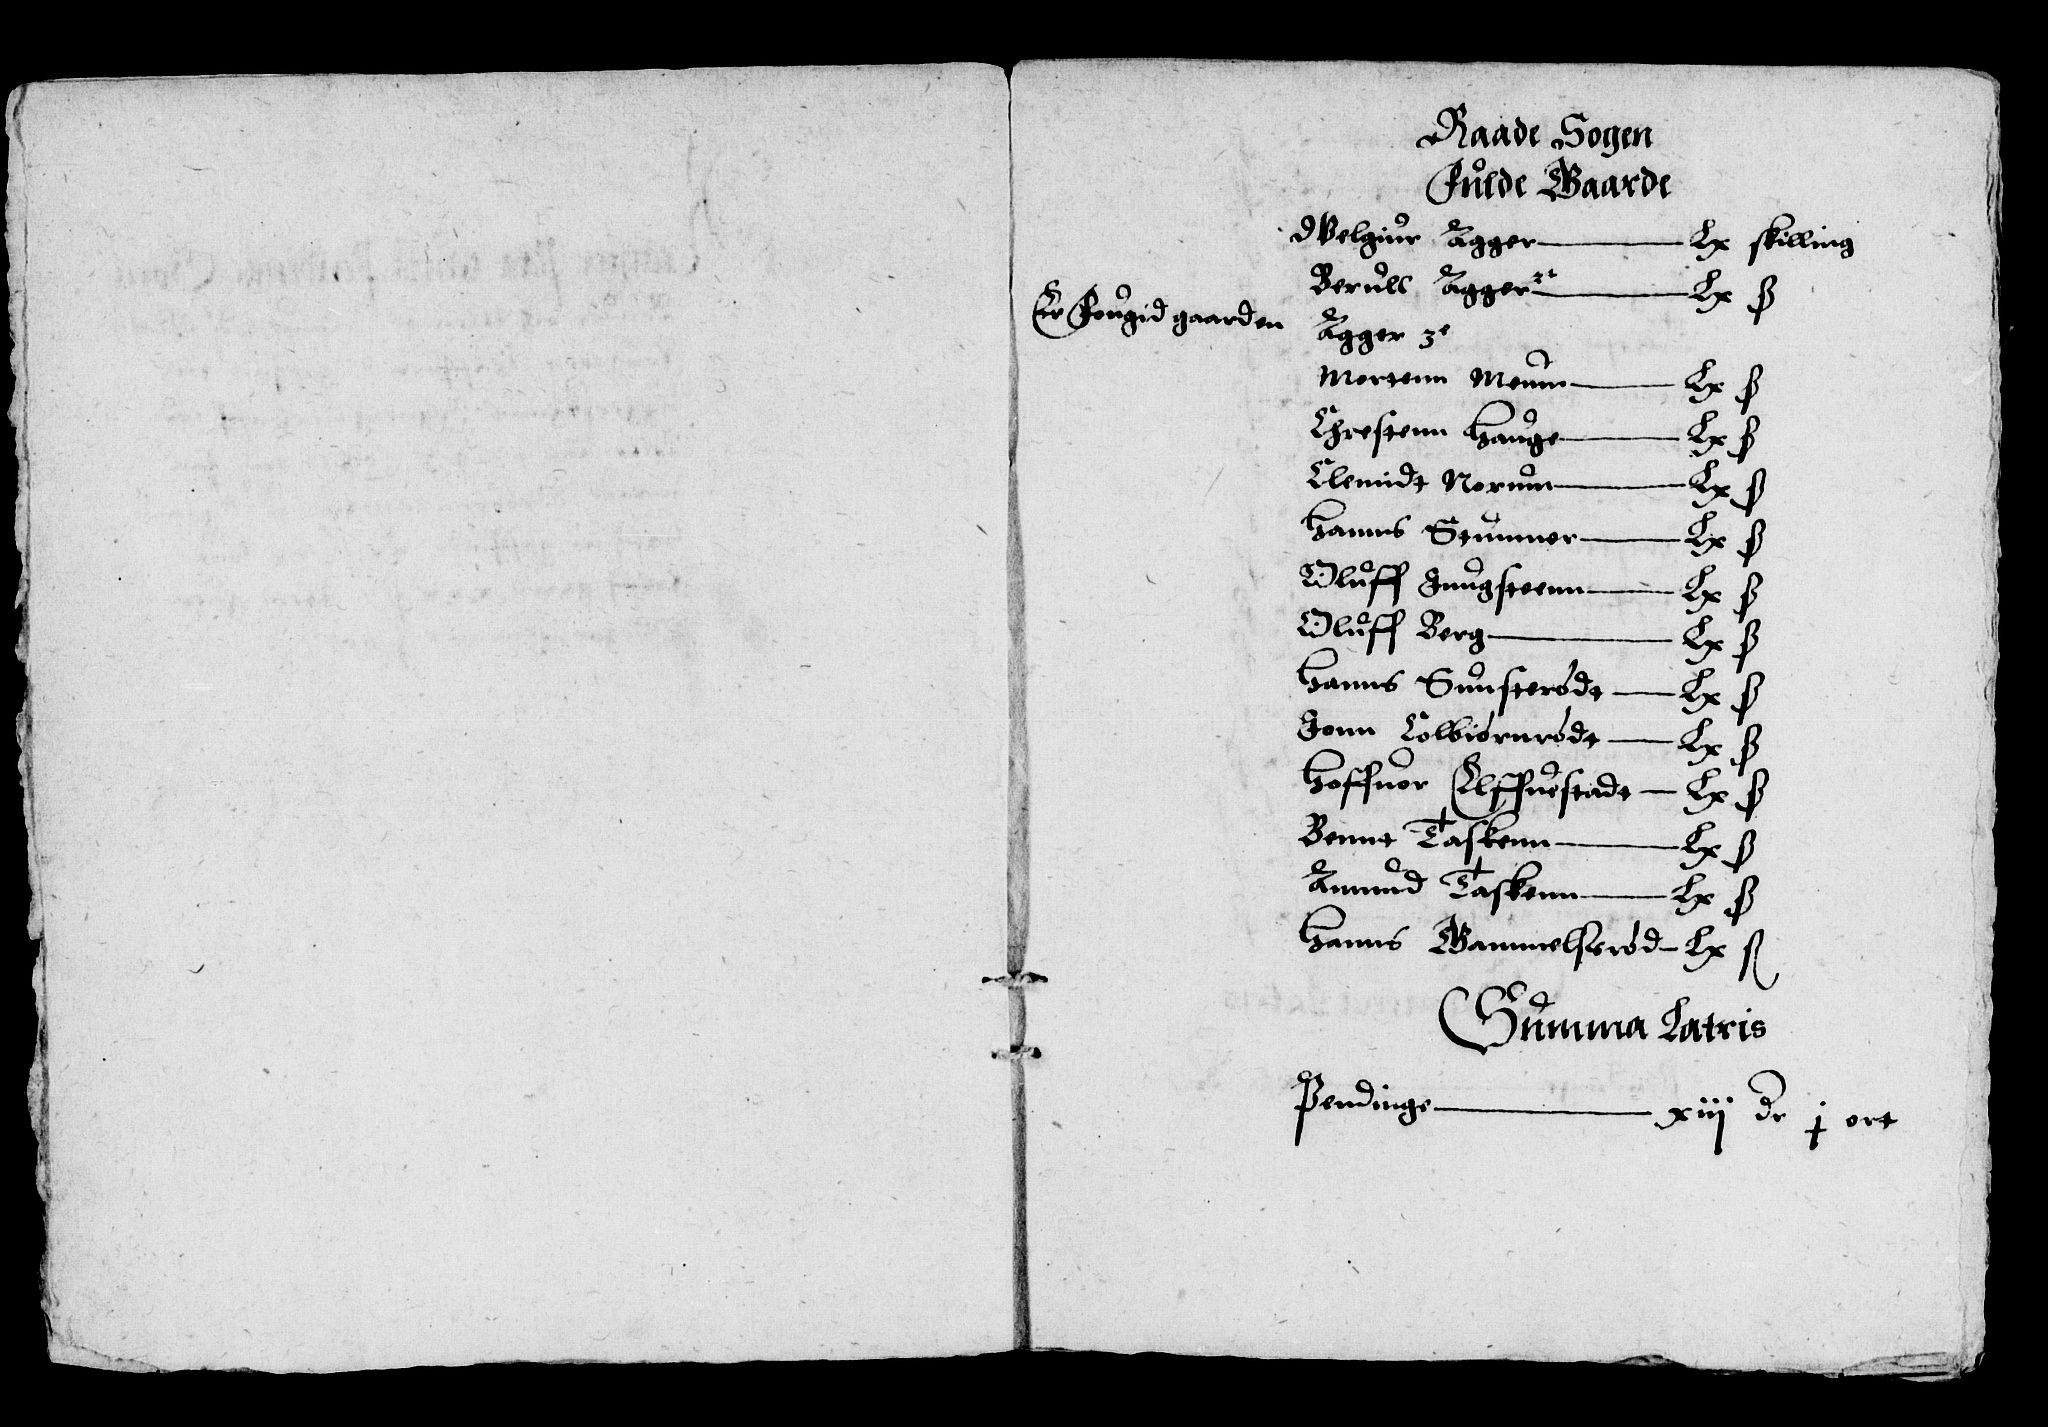 Raade Sogen
Fulde Gaarde
Welgiur Agger — Lx skilling
Berull Agger — Lx ß
Er Fougid gaarden Agger 3e
Mortenn Menum — Lx ß
Chrestenn Hauge — Lx ß
Clemidt Norum — Lx ß
Hanns Stummer — Lx ß
Oluff Jnngsteenn — Lx ß
Oluff Berg — Lx ß
Hanns Sunsterødt — Lx ß
Jonn Colbiørnrødt — Lx ß
Hoffuor Elffuestadt — Lx ß
Bennt Taskenn — Lx ß
Amund Taskenn — Lx ß
Hanns Gammelsrød — Lx ß
Summa Latris
Pendinge — xiij dr j ort